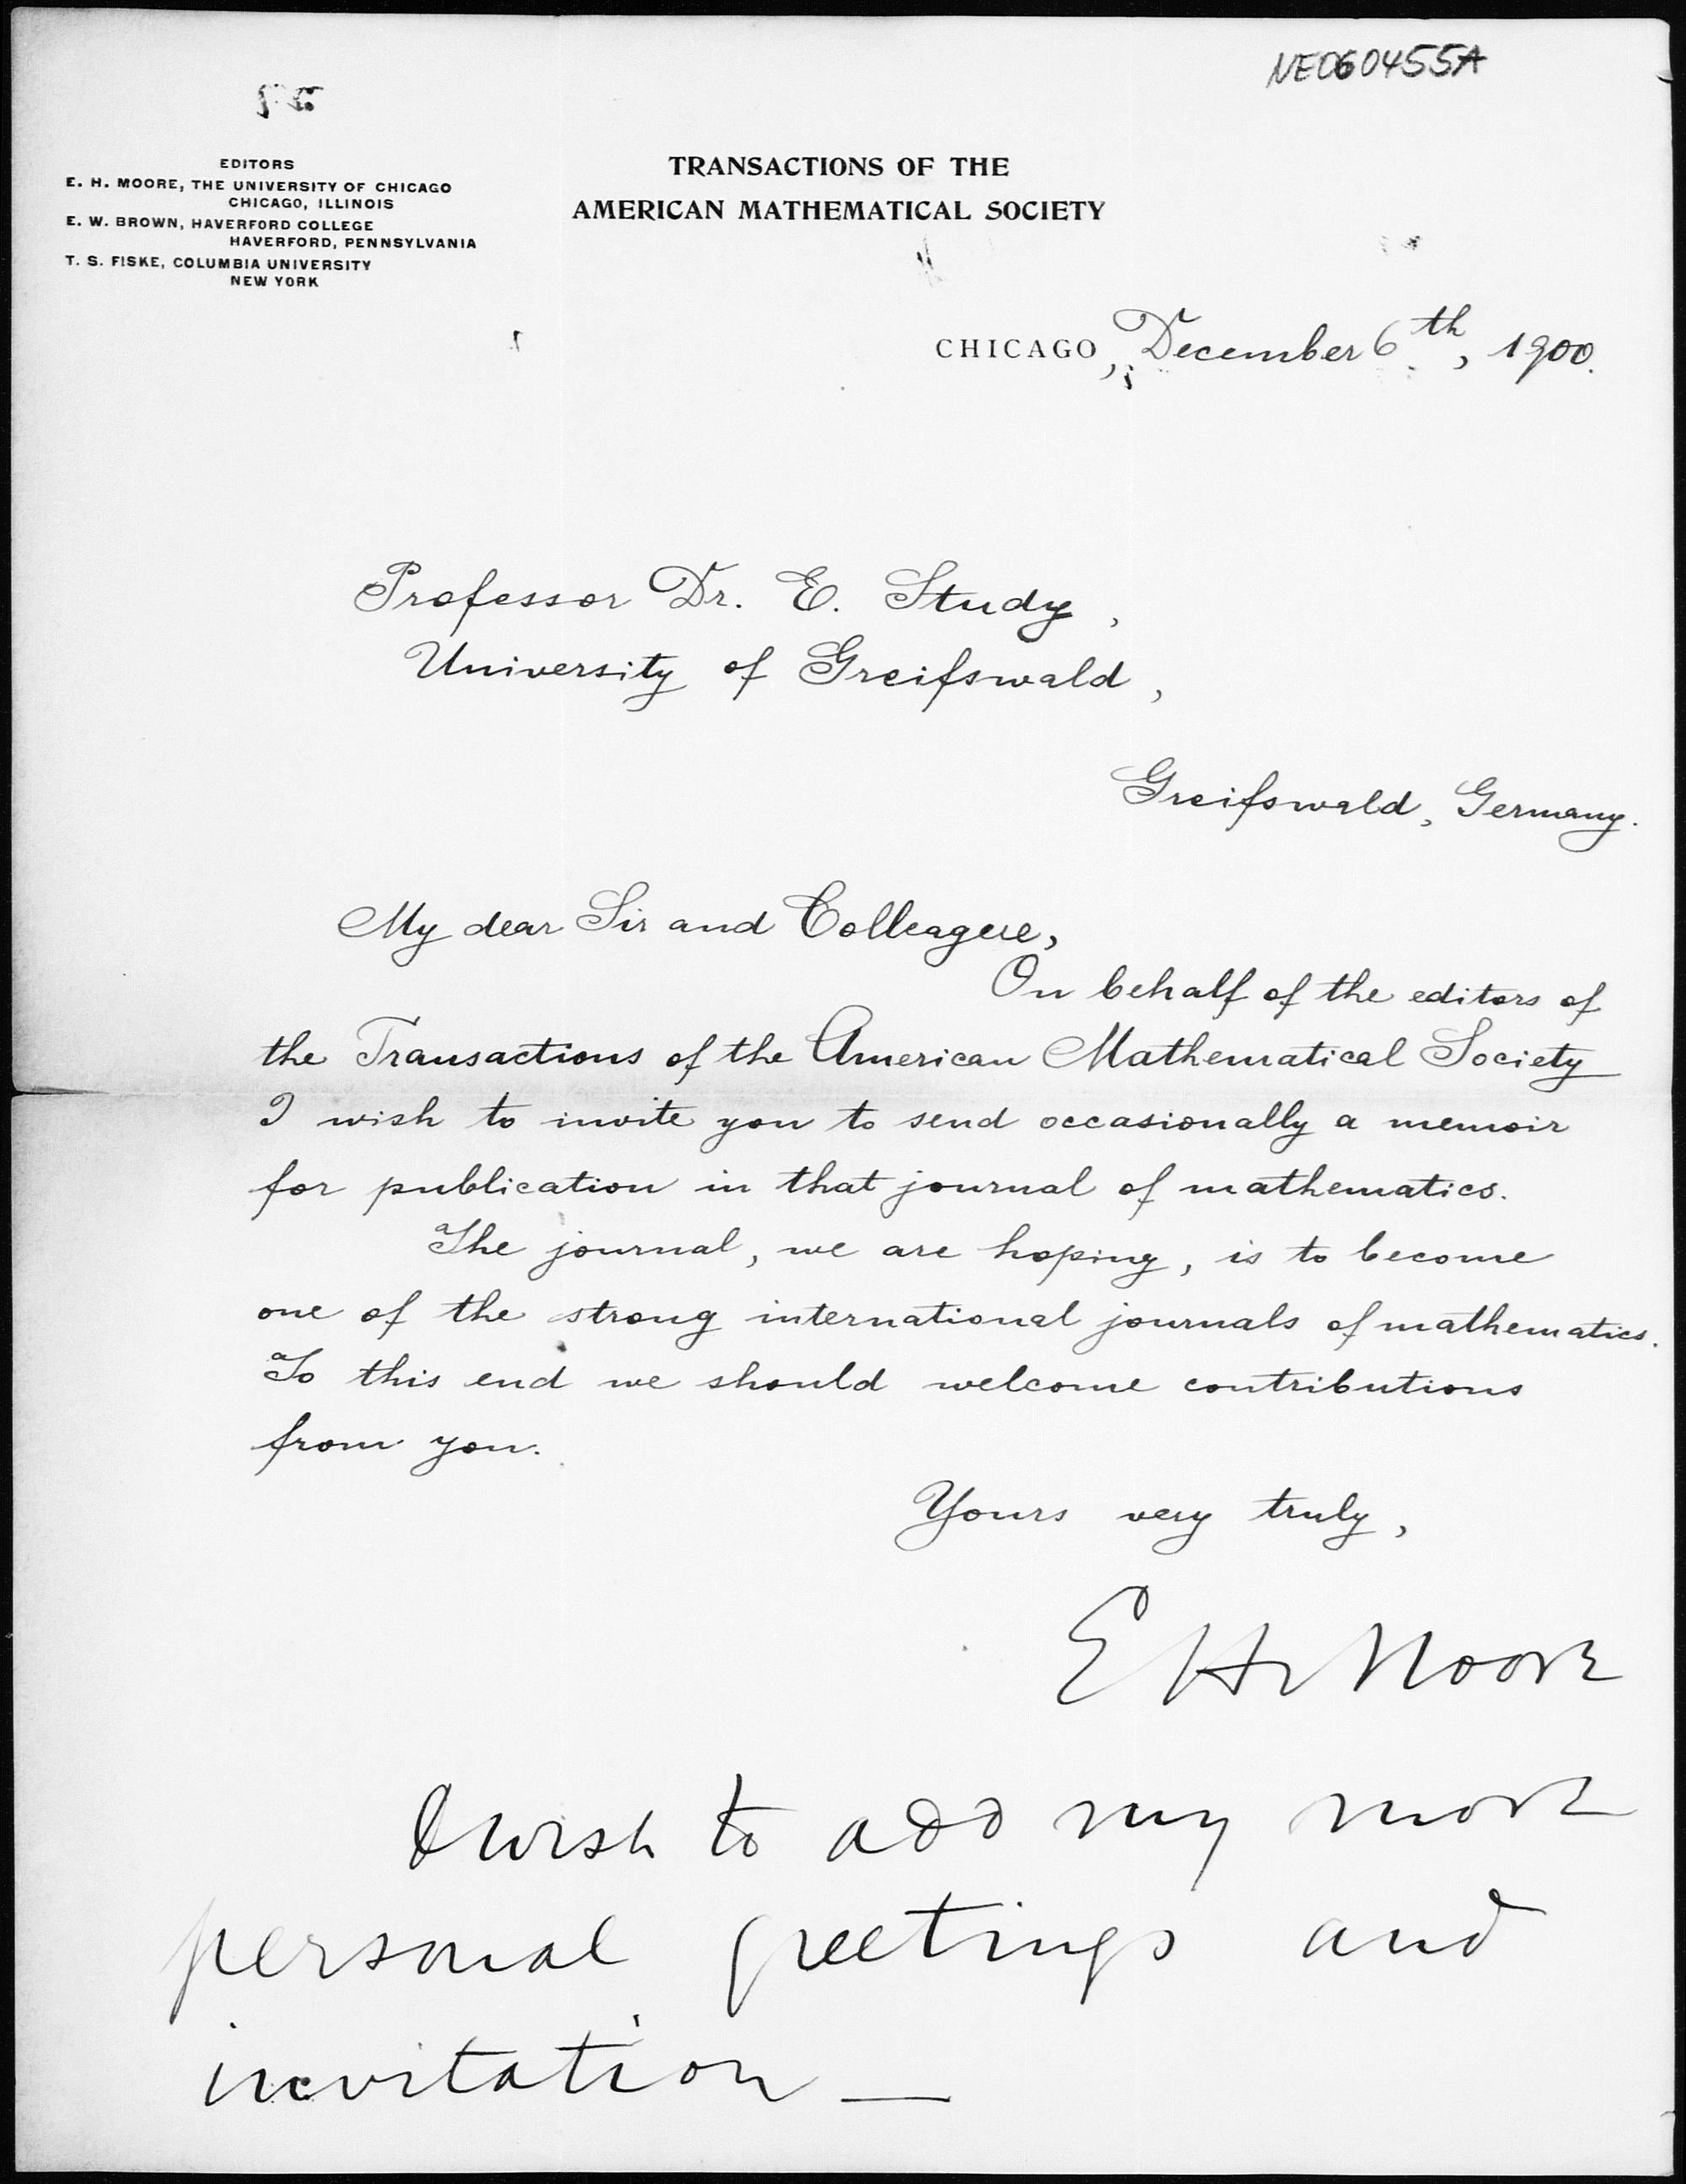 NE060455A
EDITORS
E. H. MOORE, THE UNIVERSITY OF CHICAGO
CHICAGO, ILLINOIS
E. W. BROWN, HAVERFORD COLLEGE
HAVERFORD, PENNSYLVANIA
T. S. FISKE, COLUMBIA UNIVERSITY
NEW YORK
TRANSACTIONS OF THE
AMERICAN MATHEMATICAL SOCIETY
CHICAGO, December 6th, 1900.
Professor Dr. E. Study,
University of Greifswald,
Greifswald, Germany.
My dear Sir and Colleague,
On behalf of the editors of
the Transactions of the American Mathematical Society
I wish to invite you to send occasionally a memoir
for publication in that journal of mathematics.
The journal, we are hoping, is to become
one of the strong international journals of mathematics.
To this end we should welcome contributions
from you.
Yours very truly,
E H Moore
I wish to add my more
personal greetings and
invitation —